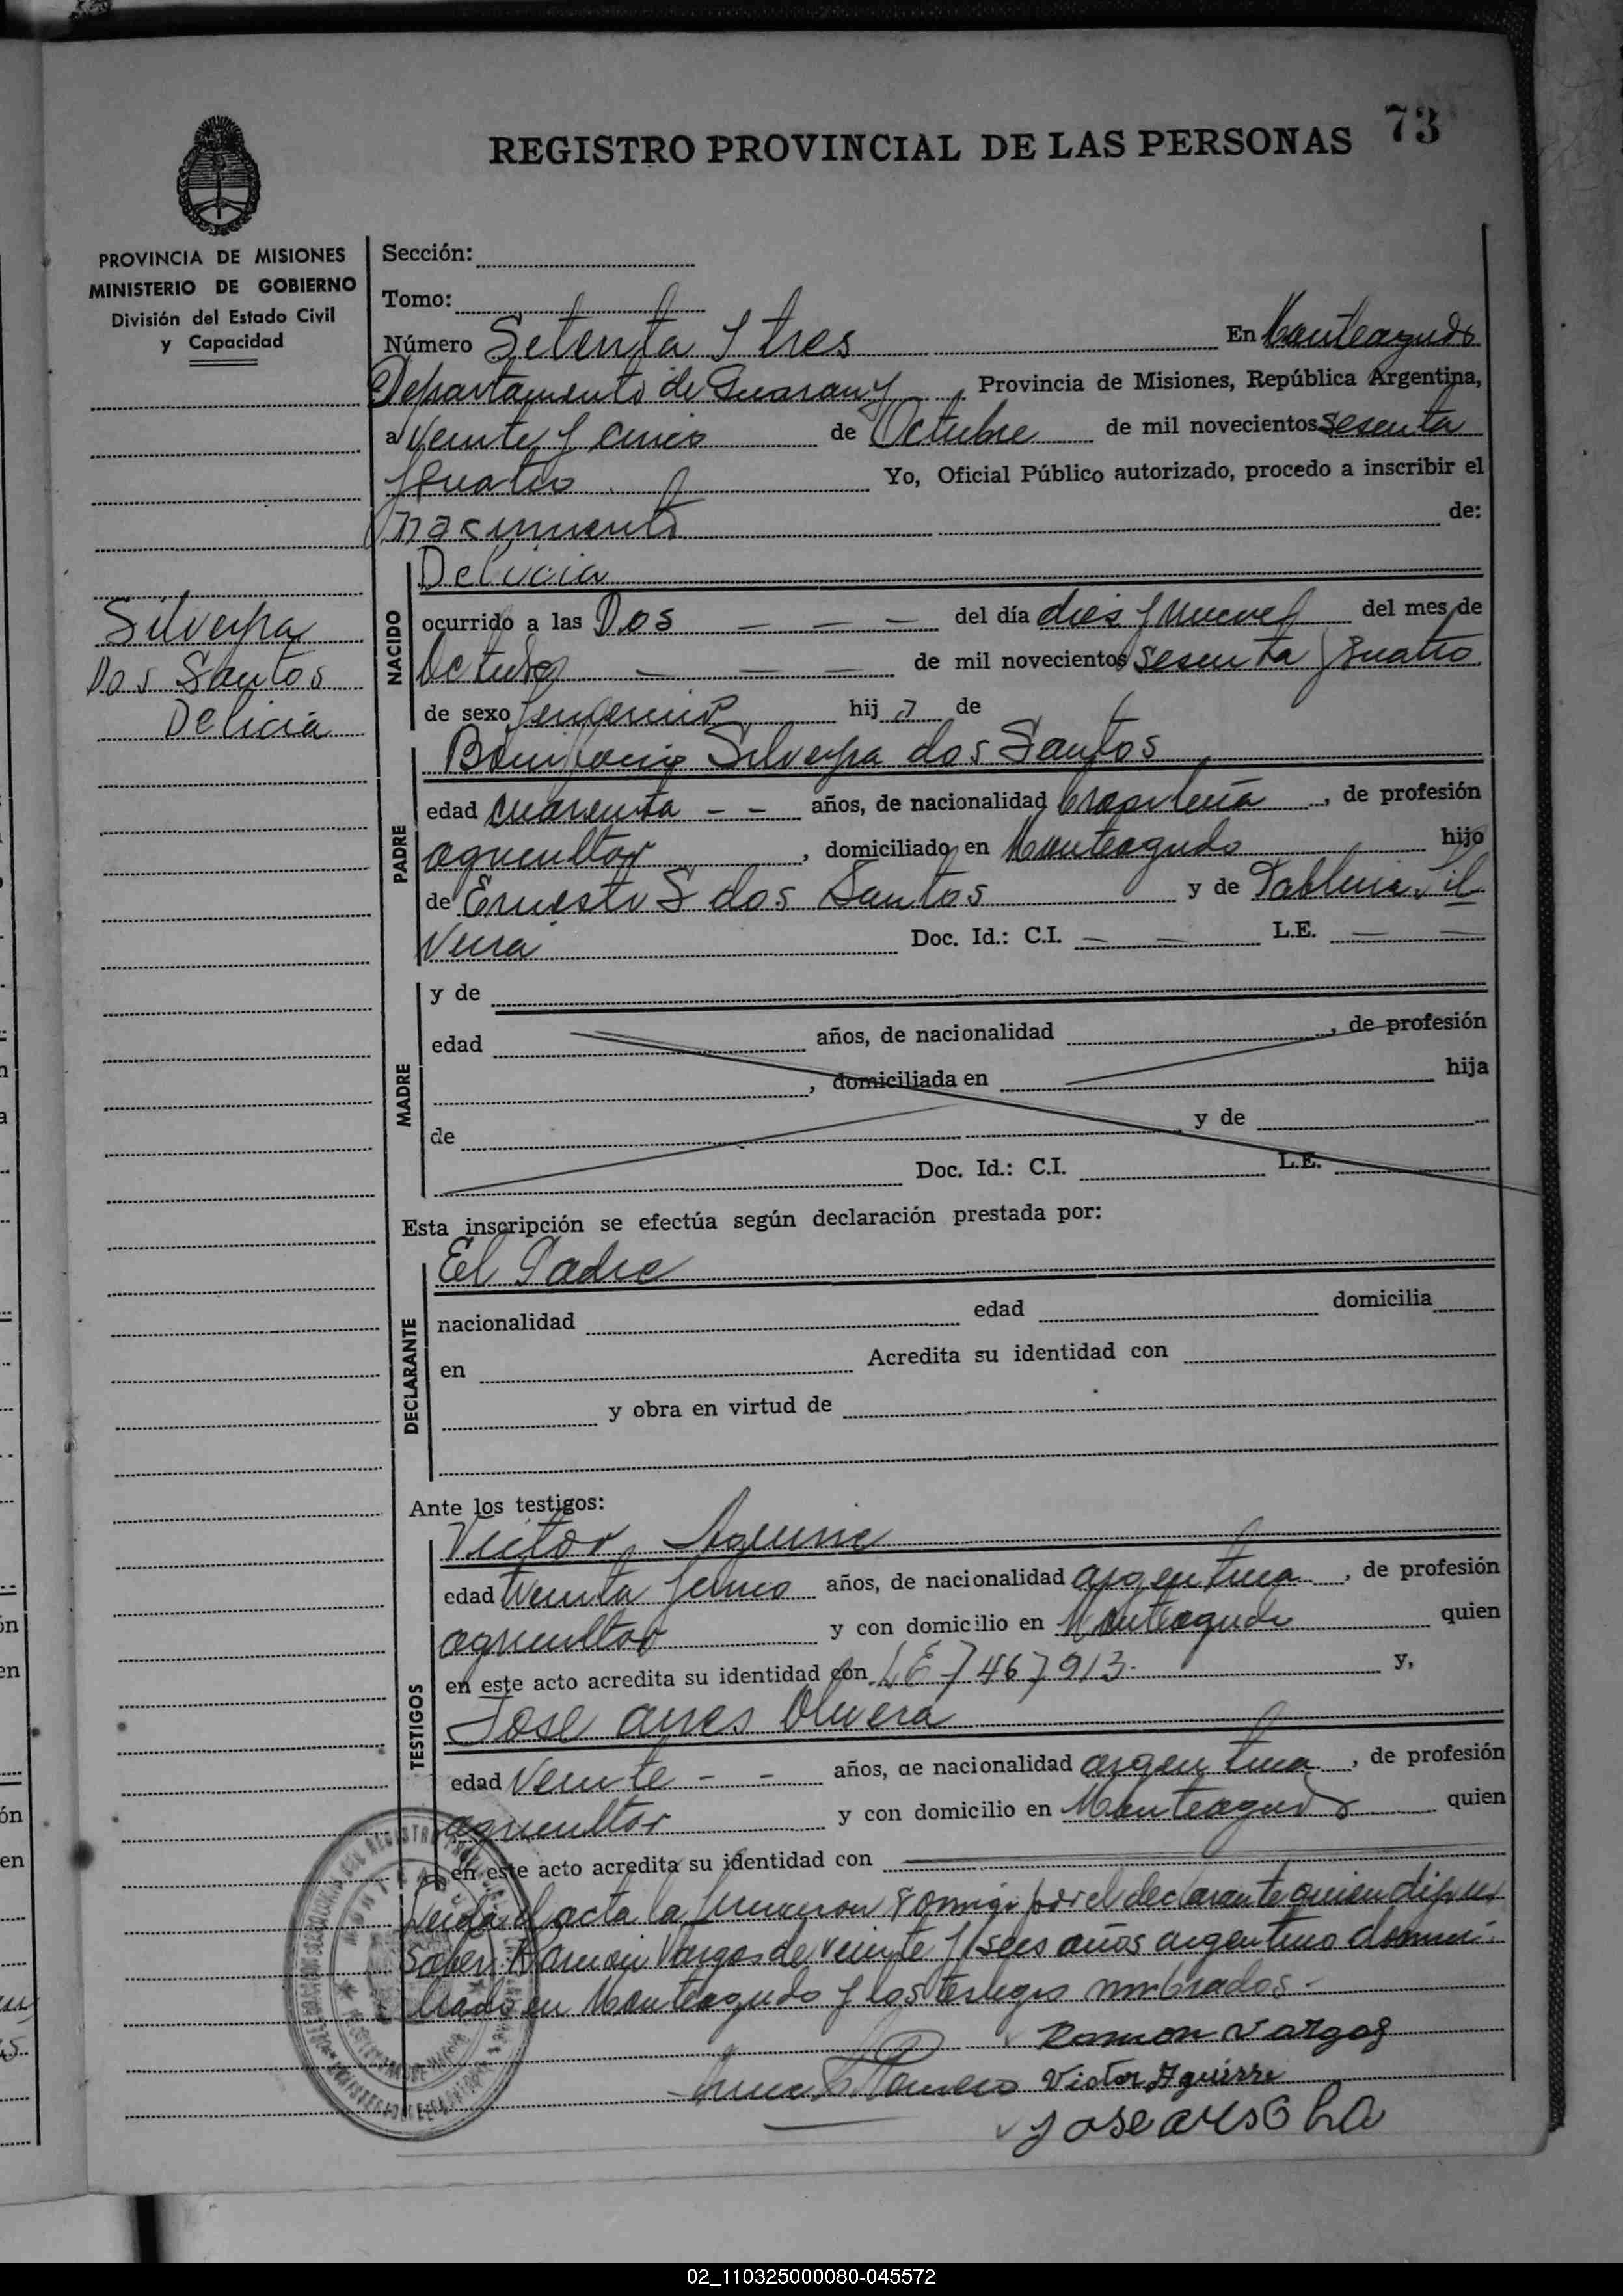 73
REGISTRO PROVINCIAL DE LAS PERSONAS
PROVINCIA DE MISIONES
MINISTERIO DE GOBIERNO
División del Estado Civil
y Capacidad
Silveyra
Dos Santos
Delicia
Sección:
Tomo:
Número Setenta y tres En Monteagudo
Departamento de Guarany, Provincia de Misiones, República Argentina,
a veinte y cinco de Octubre de mil novecientos sesenta
y cuatro Yo, Oficial Público autorizado, procedo a inscribir el
nacimiento de:
NACIDO
Delicia
ocurrido a las Dos — — — del día dies y nueve del mes de
Octubre — — — de mil novecientos sesenta y cuatro
de sexo femenino hij a de
PADRE
Bonifacio Silveyra dos Santos
edad cuarenta - - años, de nacionalidad brasileña, de profesión
agricultor, domiciliado en Monteagudo hijo
de Ernesto S dos Santos y de Sil
veira Doc. Id.: C.I. — — L.E. — —
MADRE
y de
edad años, de nacionalidad , de profesión
, domiciliada en hija
de y de
Doc. Id.: C.I. L.E.
Esta inscripción se efectúa según declaración prestada por:
DECLARANTE
El Padre
nacionalidad edad domicilia
en Acredita su identidad con
y obra en virtud de
Ante los testigos:
TESTIGOS
Victor Aguirre
edad treinta y cinco años, de nacionalidad argentina, de profesión
agricultor y con domicilio en Monteagudo quien
en este acto acredita su identidad con LE 7467913- y,
Jose aires Olivera
edad veinte - - años, de nacionalidad argentina, de profesión
agricultor y con domicilio en Monteagudo quien
en este acto acredita su identidad con
Leida el acta la firmaron comigo por el declarante quien dijo no
saber Ramon Vargas de veinte y seis años argentino domici
liado en Monteagudo y los testigos nombrados -
Ramon Vargas
Romero Victor Aguirre
Jose
02_110325000080-045572